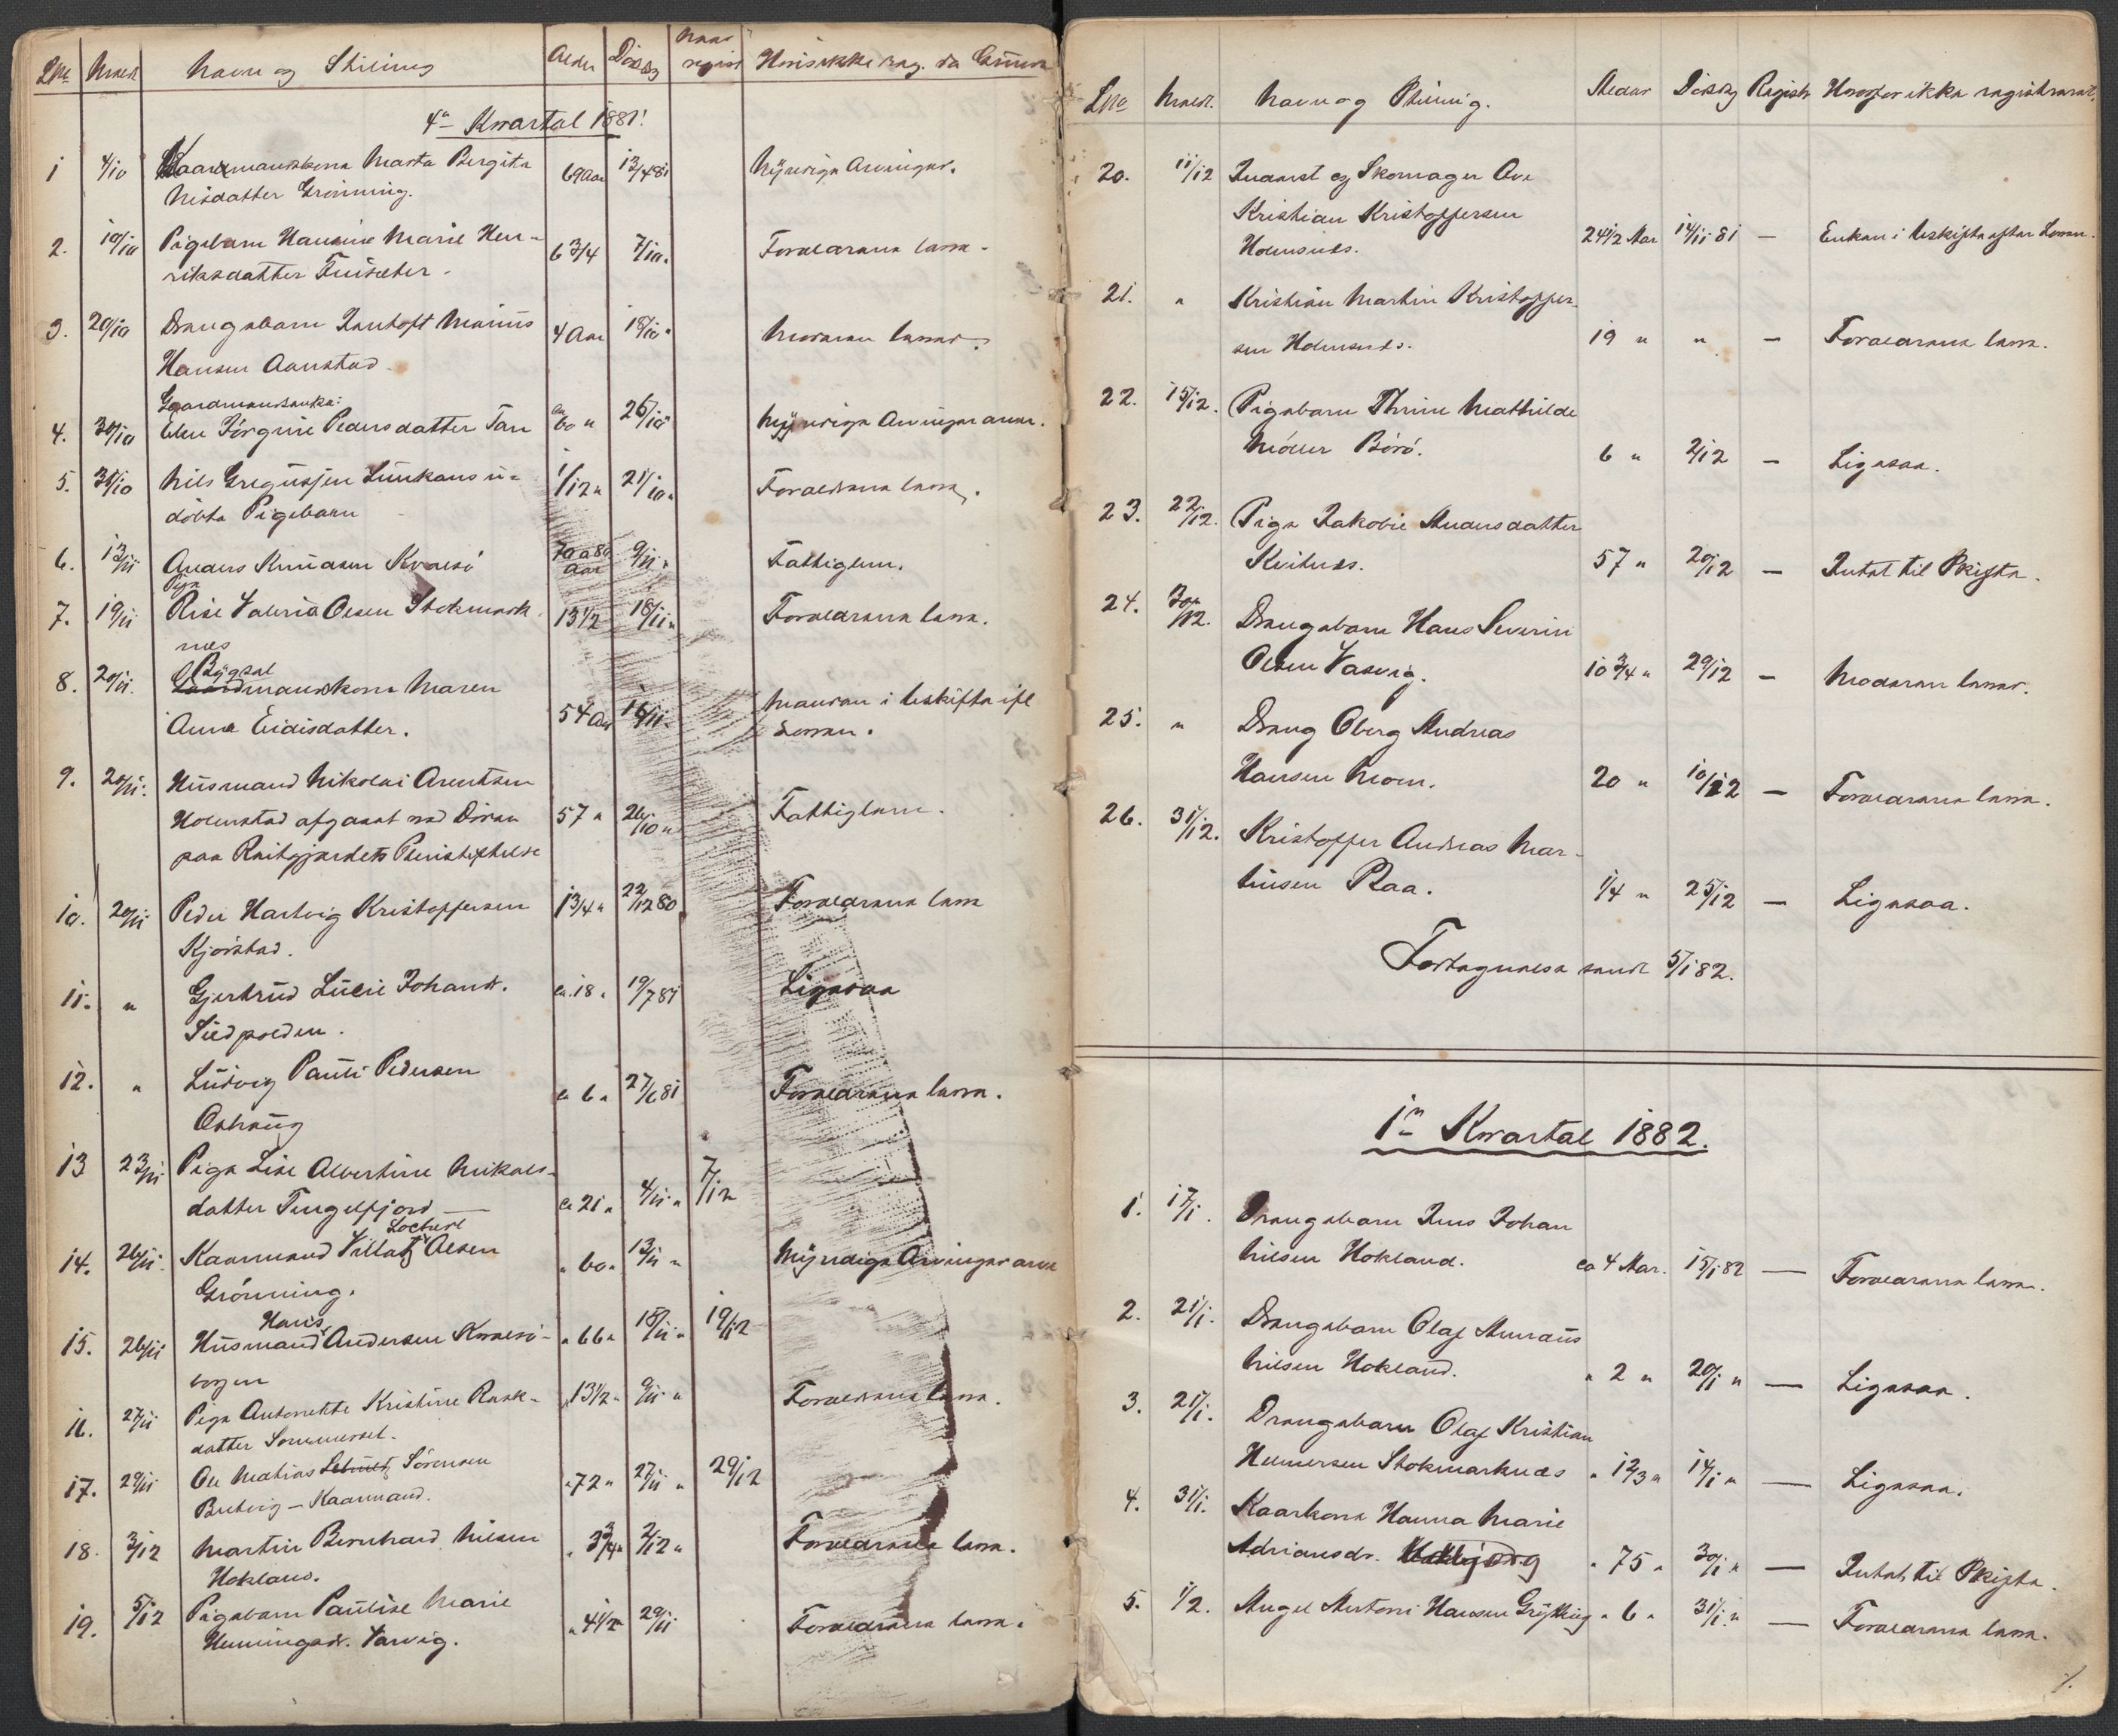 Lno Meldt Navn og Stilling Alder Dødsdg Naar regist Hvis ikke reg. da Grund
4de Kvartal 1881.
1 4/10 Kaarmandskona Marta Bergita 69 Aar 13/4 81 Myndige Arvinger.
Nisdatter Grønning.
2. 10/10 Pigebarn Hansine Marie Hen- 6 3/4 7/10 " Forældrene leve.
riksdatter Finsæter.
3. 20/10 Drengebarn Zentoft Marius 4 Aar 18/10 " Moderen lever.
Hansen Aanstad.
Gaardmandsenke:
4. 30/10 Elen Jørgine Pedersdatter Tan ca 60 " 26/10 " Myndige Arvinger arver.
5. 31/10 Nils Gregusjen Lunkans u- 1/12 " 21/10 " Forældrene leve.
døbte Pigebarn
6. 13/11 Anders Knudsen Kvalsø 70 a 80 Aar 9/11 " Fattiglem.
Pige
7. 19/11 Rise Valeria Olsen Stokmark 13 1/2 18/11 " Forældrene leve.
næs
Bygsel
8. 20/11 Gaardmandskone Maren 54 Aar 16/11 " Manden i Uskifte ifl
Anna Eidisdatter. Loven.
9. 20/11. Husmand Nikolai Arentsen
Holmstad afgaaet ved Døden 57 " 26/10 " Fattiglem.
paa Reitgjerdets Pleiestiftelse
10. 20/11 Peder Hartvig Kristoffersen 1 3/4 " 22/12 80 Forældrene leve
Kjørstad.
11. " Gjertrud Lucie Johansdr. ca. 18 " 19/7 81 Ligesaa
Sildpolden.
12. " Ludvig Pauli Pedersen ca 6 " 27/6 81 Forældrene leve.
Oshaug
13 23/11 Pige Lise Albertine Nikols- ca 21 " 4/11 " 7/12
datter Tengelfjord —
Lockert
14. 26/11. Kaarmand Villatz Olsen " 60 " 13/11 " Myndige Arvinger arve
Grønning.
Hans
15. 26/11 Husmand Andersen Kvalsø- " 66 " 18/11 " 19/12
vogen
16. 27/11 Pige Antonette Kristine Rask- " 13 1/2 " 9/11 " Forældrene leve.
datter Sommersel.
17. 29/11 Ole Mathias Schult, Sørensen " 72 " 27/11 " 29/12
Butvig – Kaarmand.
18. 3/12 Martin Bernhard Nilsen " 3 3/4 " 2/12 " Forældrene leve.
Hokland.
19. 5/12 Pigebarn Pauline Marie " 4 1/2 " 29/11 Forældrene leve.
Henningsdr. Varvig.
Lno Meldt. Navn og Stilling. Alder Dødsdg Registr Hvorfor ikke registreret.
20. 11/12 Inderst og Skomager Ove
Kristian Kristoffersen 24 1/2 Aar 14/11 81 – Enken i Uskifte efter Loven.
Holmsnes.
21. " Kristian Martin Kristoffer-
sen Holmsnes. 19 " " – Forældrene leve.
22. 15/12. Pigebarn Thrine Mathilde
Møller Børø. 6 " 2/12 – Ligesaa.
23. 22/12. Pige Jakobie Andersdatter
Kvitnes. 57 " 20/12 – Intet til Skifte.
24. 30/12. Drengebarn Hans Severin
Olsen Vasvig. 10 3/4 " 29/12 – Moderen lever.
25. " Dreng Oberg Andreas
Hansen Moen. 20 " 10/12 – Forældrene leve.
26. 31/12. Kristoffer Andreas Mar-
tinsen Skaa. 1/4 " 25/12 – Ligesaa.
Fortegnelse sendt 5/1 82.
1ste Kvartal 1882.
1. 17/1. Drengebarn Jens Johan
Nilsen Hokland. ca 4 Aar. 15/1 82 — Forældrene leve.
2. 21/1. Drengebarn Olaf Amraus
Nilsen Hokland. " 2 " 20/1 " — Ligesaa.
3. 21/1. Drengebarn Olaf Kristian
Helmersen Stokmarknæs " 1 2/3 " 14/1 " — Ligesaa.
4. 31/1. Kaarkone Hanna Marie
Adriansdr. " 75 " 30/1 " — Intet til Skifte.
5. 1/2. Angel Antoni Hansen Grytting " 6 " 31/1. " — Forældrene leve.